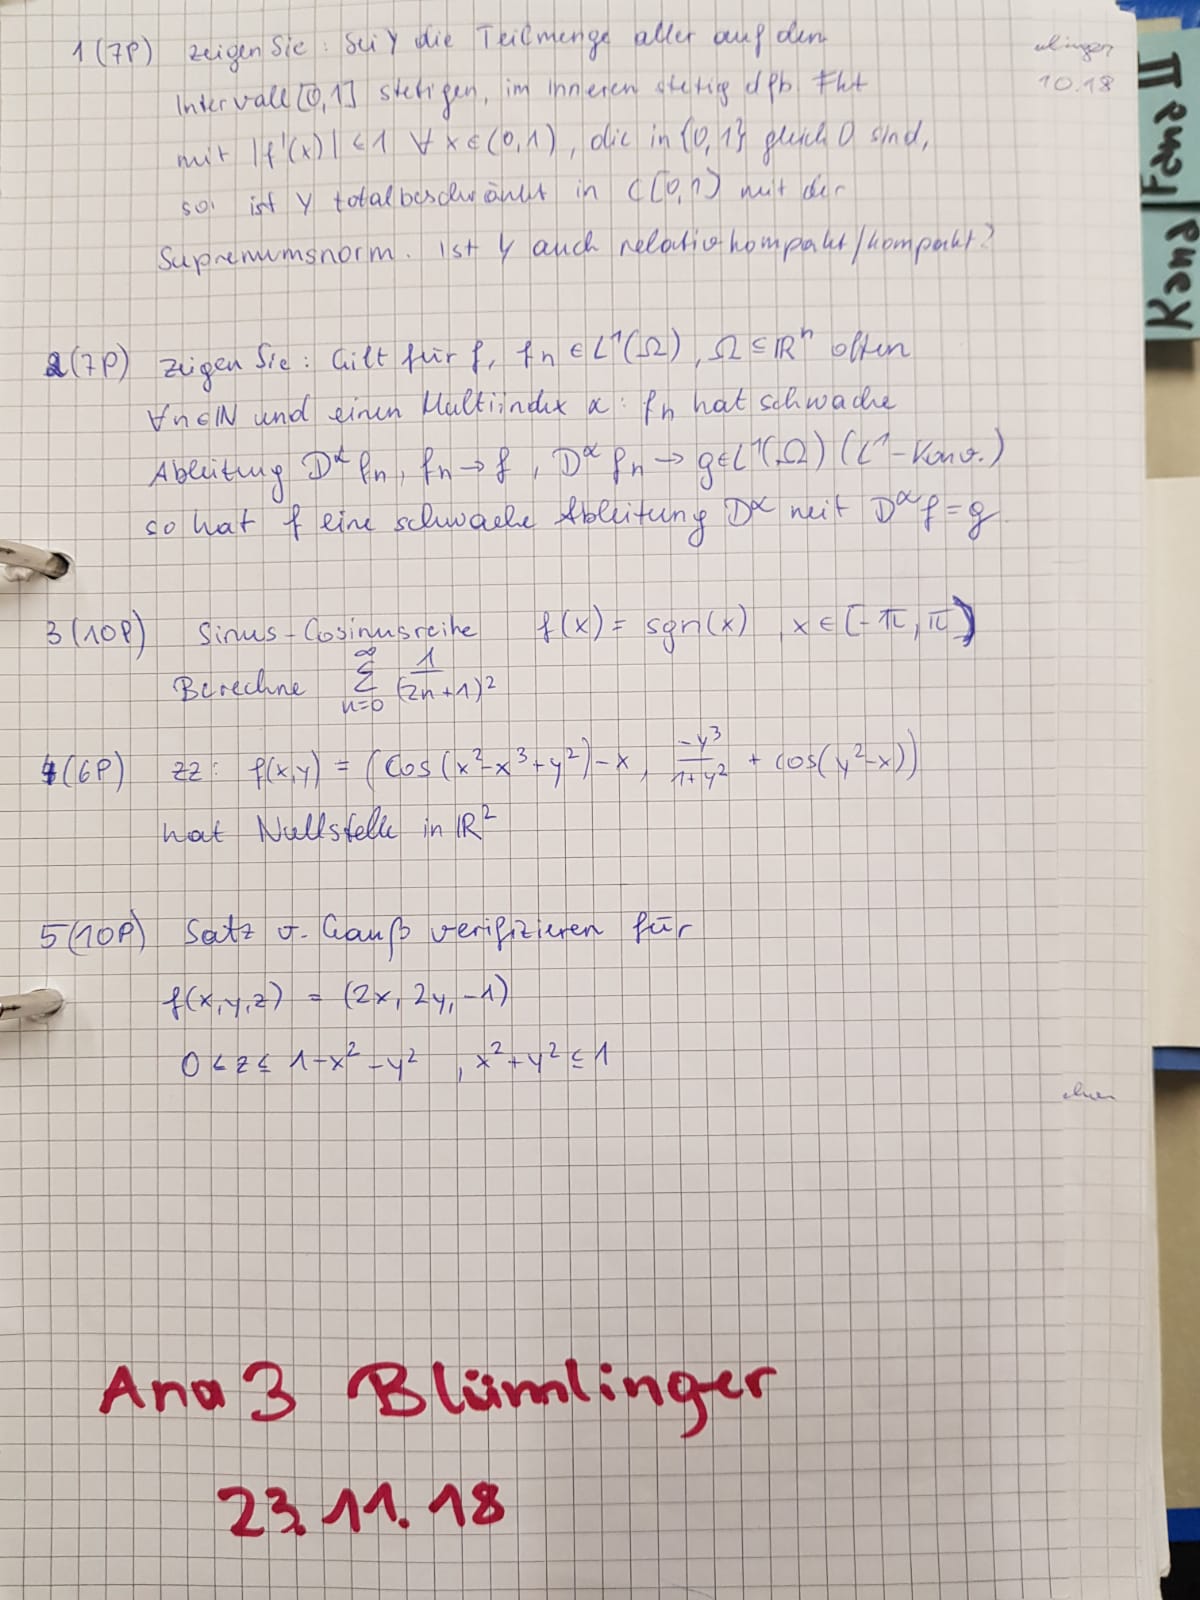 1 (7P) zeigen Sie: Sei Y die Teilmenge aller auf den
Intervall [0,1] stetigen, im Inneren stetig dfb. Fkt
mit |f'(x)| < 1 ∀ x ∈ (0,1), die in {0,1} gleich 0 sind,
so ist Y totalbeschränkt in C[0,1] mit der
Supremumsnorm. Ist Y auch relativkompakt/kompakt?
2 (7P) zeigen Sie: Gilt für f, fn ∈ L¹(Ω), Ω ⊆ ℝⁿ offen
∀n∈ℕ und einen Multiindex α: fn hat schwache
Ableitung D^α fn, fn → f, D^α fn → g ∈ L¹(Ω) (L¹-Konv.)
so hat f eine schwache Ableitung D^α mit D^α f = g
3 (10P) Sinus-Cosinusreihe f(x) = sgn(x) , x ∈ [-π, π)
Berechne ∑_{n=0}^{∞} 1/(2n+1)²
4 (6P) zz: f(x,y) = (cos(x²-x³+y²)-x, -y³/(1+y²) + cos(y²-x))
hat Nullstelle in ℝ²
5 (10P) Satz v. Gauß verifizieren für
f(x,y,z) = (2x, 2y, -1)
0 < z ≤ 1-x²-y² , x²+y² ≤ 1
Ana 3 Blümlinger
23.11.18
10.18
Fana II
Kana